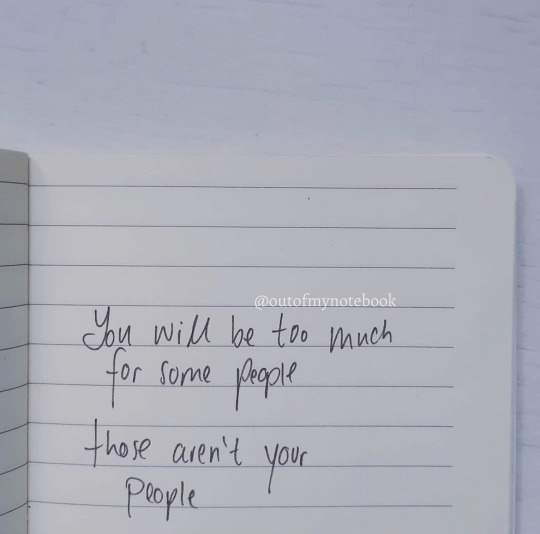 @outofmynotebook
You will be too much
for some people
those aren't your
people